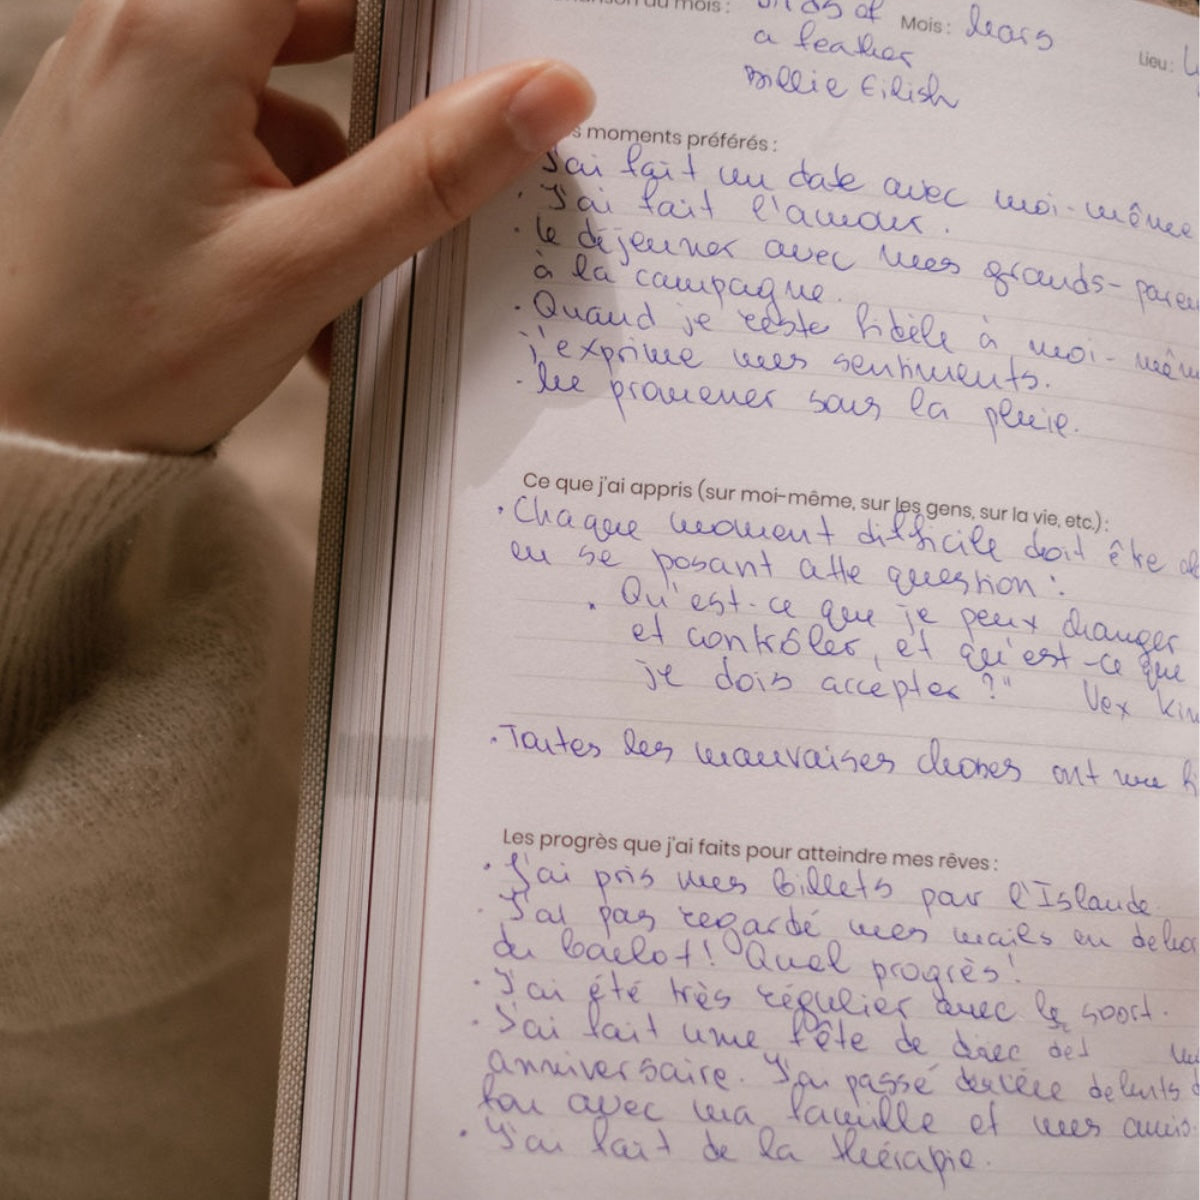 du mois : Birds of Mois : Mars Lieu : L
a feather
Billie Eilish
s moments préférés :
J'ai fait un date avec moi-même
. J'ai fait l'amour.
. Le déjeuner avec mes grands-paren
à la campagne.
. Quand je reste fidèle à moi-mêm
j'exprime mes sentiments.
. Me promener sous la pluie.
Ce que j'ai appris (sur moi-même, sur les gens, sur la vie, etc.) :
. Chaque moment difficile doit être
en se posant cette question :
. Qu'est-ce que je peux changer
et contrôler, et qu'est-ce que
je dois accepter ?" Vex Kin
. Toutes les mauvaises choses ont une
Les progrès que j'ai faits pour atteindre mes rêves :
. J'ai pris mes billets pour l'Islande.
. J'ai pas regardé mes mails en deho
du boulot ! Quel progrès !
. J'ai été très régulier avec le sport.
. J'ai fait une fête de
anniversaire. J'ai passé
fou avec ma famille et mes amis.
. J'ai fait de la thérapie.